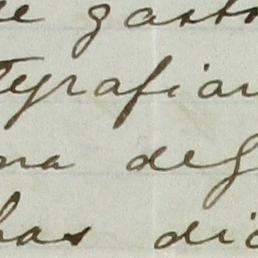 de gasto
tegrafiar
na def
has dic